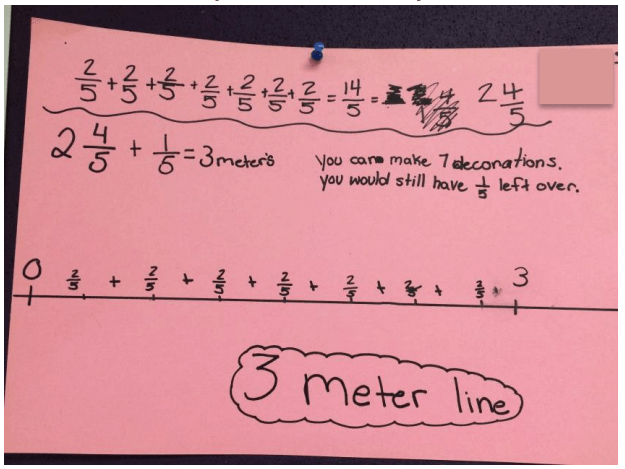 2/5 + 2/5 + 2/5 + 2/5 + 2/5 + 2/5 + 2/5 = 14/5 = 2 4/5
2 4/5 + 1/5 = 3 meters
you can make 7 decorations.
you would still have 1/5 left over.
0 2/5 + 2/5 + 2/5 + 2/5 + 2/5 + 2/5 + 2/5 3
3 meter line